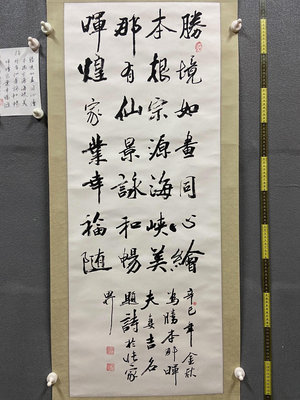 勝境如畫同心繪
本根宗源海峽美
那有仙景詠和暢
暉煌家業幸福隨
辛巳年金秋
為勝本那暉
夫妻吉名
題詩於张家
界